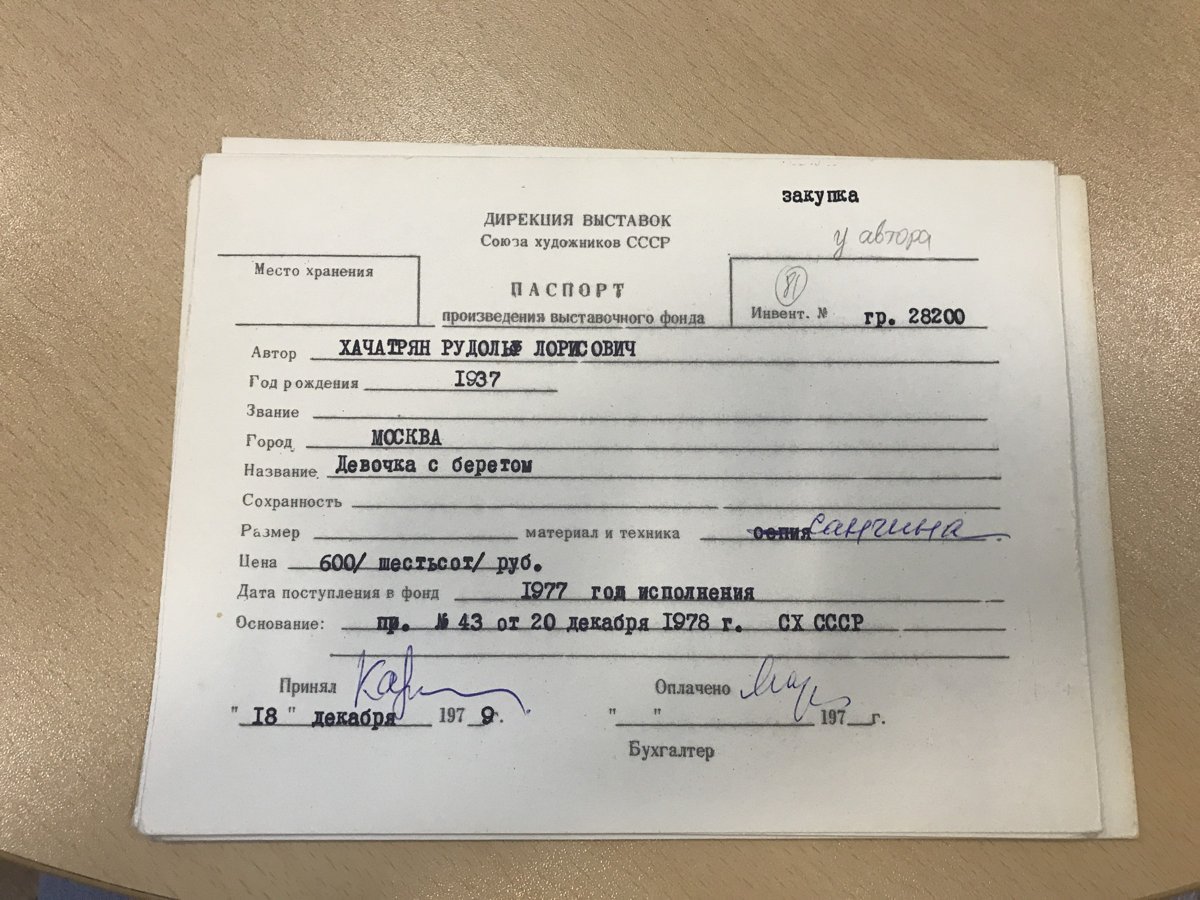 закупка
ДИРЕКЦИЯ ВЫСТАВОК
Союза художников СССР
у автора
Место хранения
ПАСПОРТ
произведения выставочного фонда
Инвент. № гр. 28200
Автор ХАЧАТРЯН РУДОЛЬФ ЛОРИСОВИЧ
Год рождения 1937
Звание
Город МОСКВА
Название Девочка с беретом
Сохранность
Размер материал и техника сепия сангина
Цена 600/ шестьсот/ руб.
Дата поступления в фонд 1977 год исполнения
Основание: пр. № 43 от 20 декабря 1978 г. СХ СССР
Принял Оплачено
" 18 " декабря 1979г. " " 197 г.
Бухгалтер